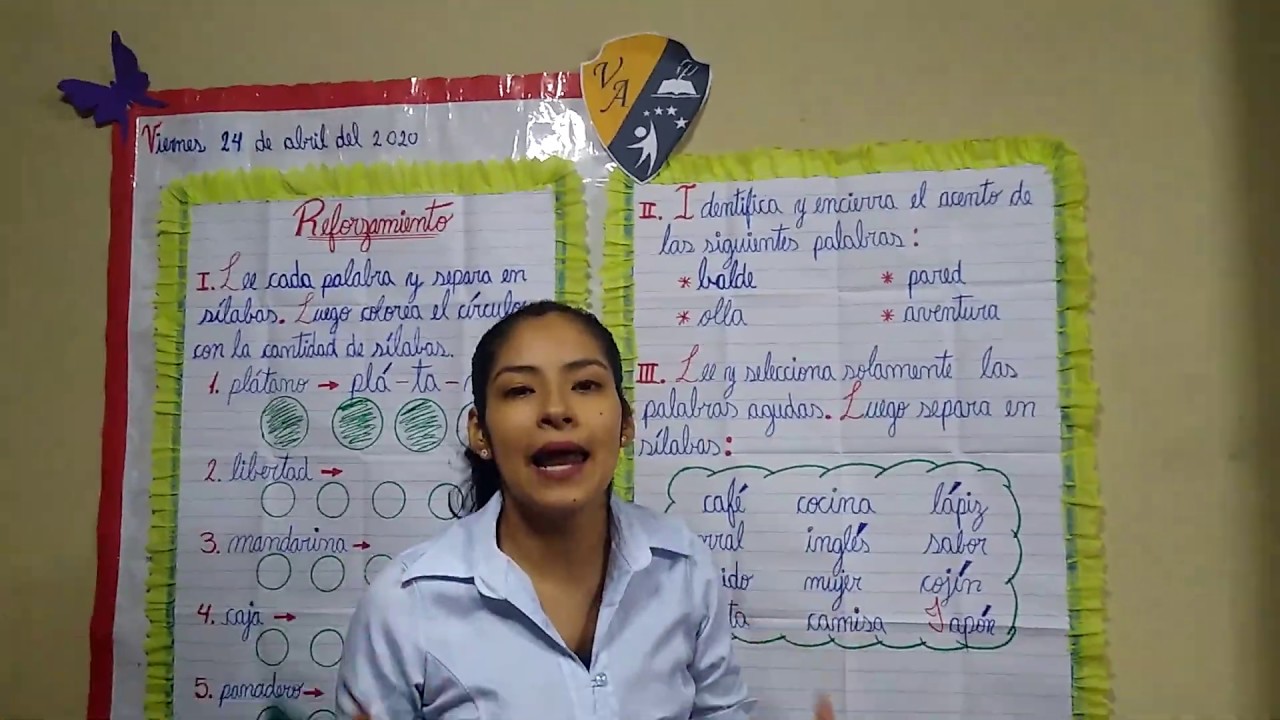 Viernes 24 de abril del 2020
VA
Reforzamiento
I. Lee cada palabra y separa en
sílabas. Luego colorea el círculo
con la cantidad de sílabas.
1. plátano → plá-ta-
2. libertad →
3. mandarina →
4. caja →
5. panadero →
II. Identifica y encierra el acento de
las siguientes palabras:
* balde * pared
* olla * aventura
III. Lee y selecciona solamente las
palabras agudas. Luego separa en
sílabas:
café cocina lápiz
inglés sabor
mujer cojín
camisa Japón